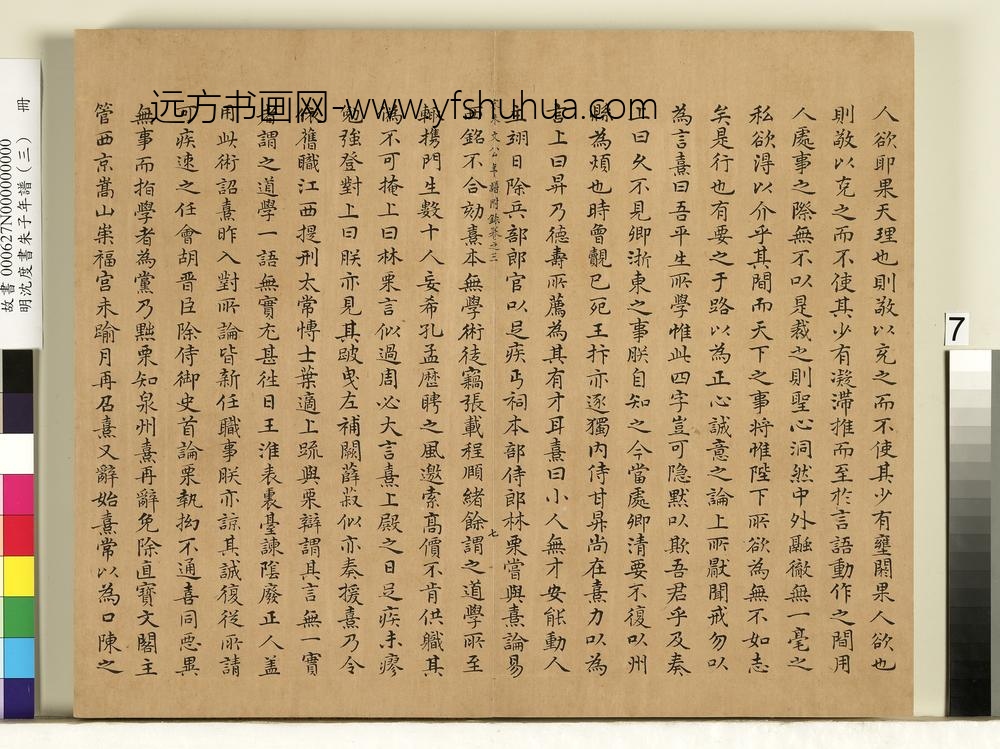 人欲耶果天理也則敬以充之而不使其少有壅閼果人欲也
則敬以克之而不使其少有凝滯推而至於言語動作之間用
人處事之際無不以是裁之則聖心洞然中外融徹無一毫之
私欲得以介乎其間而天下之事將惟陛下所欲為無不如志
矣是行也有要之于路以為正心誠意之論上所厭聞戒勿以
為言熹曰吾平生所學惟此四字豈可隐默以欺吾君乎及奏
上曰久不見卿浙東之事朕自知之今當處卿清要不復以州
縣為煩也時曾覿已死王抃亦逐獨內侍甘昪尚在熹力以為
言上曰昇乃德壽所薦為其有才耳熹曰小人無才安能動人
主翊日除兵部郎官以足疾丐祠本部侍郎林栗嘗與熹論易
朱文公年譜附錄卷之三
七
西銘不合劾熹本無學術徒竊張載程頤緒餘謂之道學所至
輒携門生數十人妄希孔孟歷聘之風邀索髙價不肯供職其
偽不可掩上曰林栗言似過周必大言熹上殿之日足疾未瘳
勉強登對上曰朕亦見其跛曳左補闕薛叔似亦奏援熹乃令
依舊職江西提刑太常博士葉適上疏與栗辯謂其言無一實
者謂之道學一語無實尤甚徃日王淮表裏臺諫陰廢正人盖
用此術詔熹昨入對所論皆新任職事朕亦諒其誠復從所請
可疾速之任會胡晋臣除侍御史首論栗執拗不通喜同惡異
無事而指學者為黨乃黜栗知泉州熹再辭免除直寶文閣主
管西京嵩山崇福宫未踰月再召熹又辭始熹常以為口陳之
远方书画网-www.yfshuhua.com
冊
故書000627N000000000
明沈度書朱子年譜（三）
7